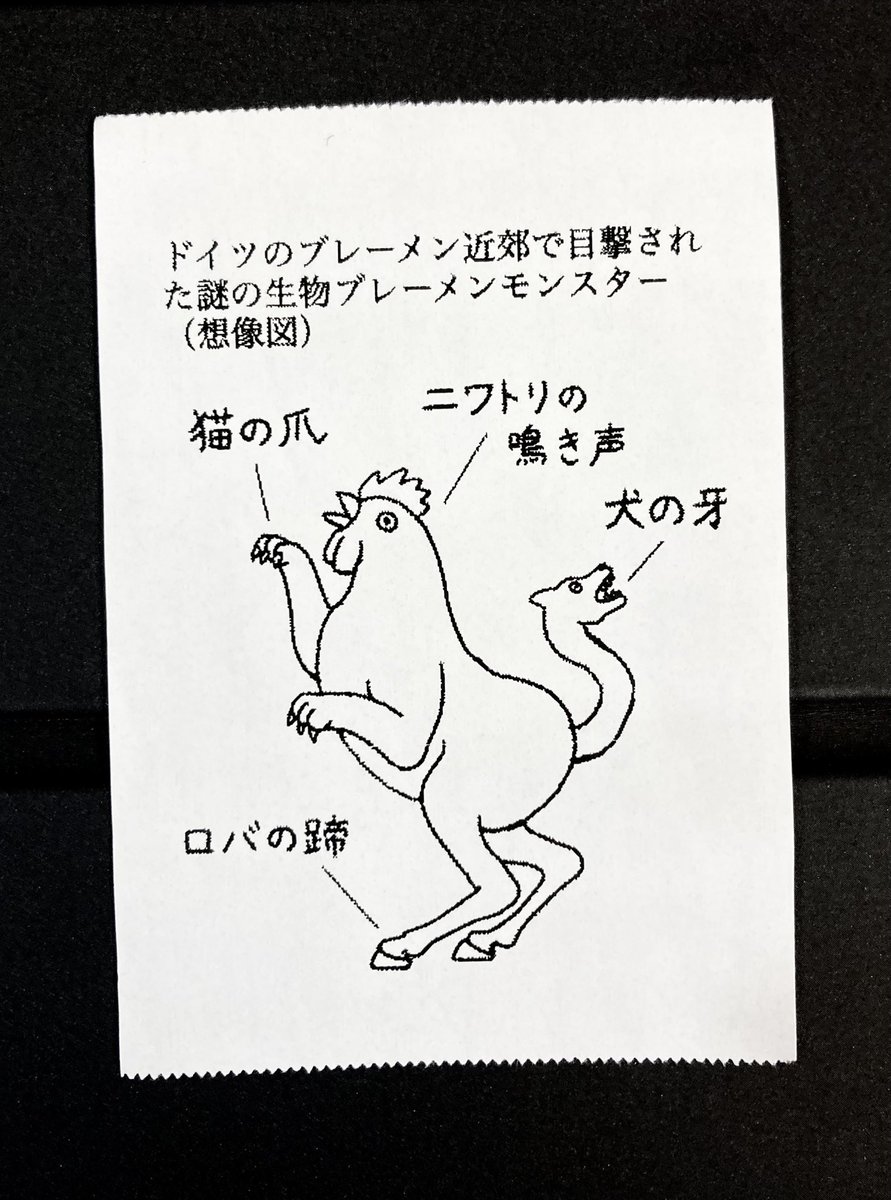 ドイツのブレーメン近郊で目撃され
た謎の生物ブレーメンモンスター
（想像図）
猫の爪
ニワトリの
鳴き声
犬の牙
ロバの蹄